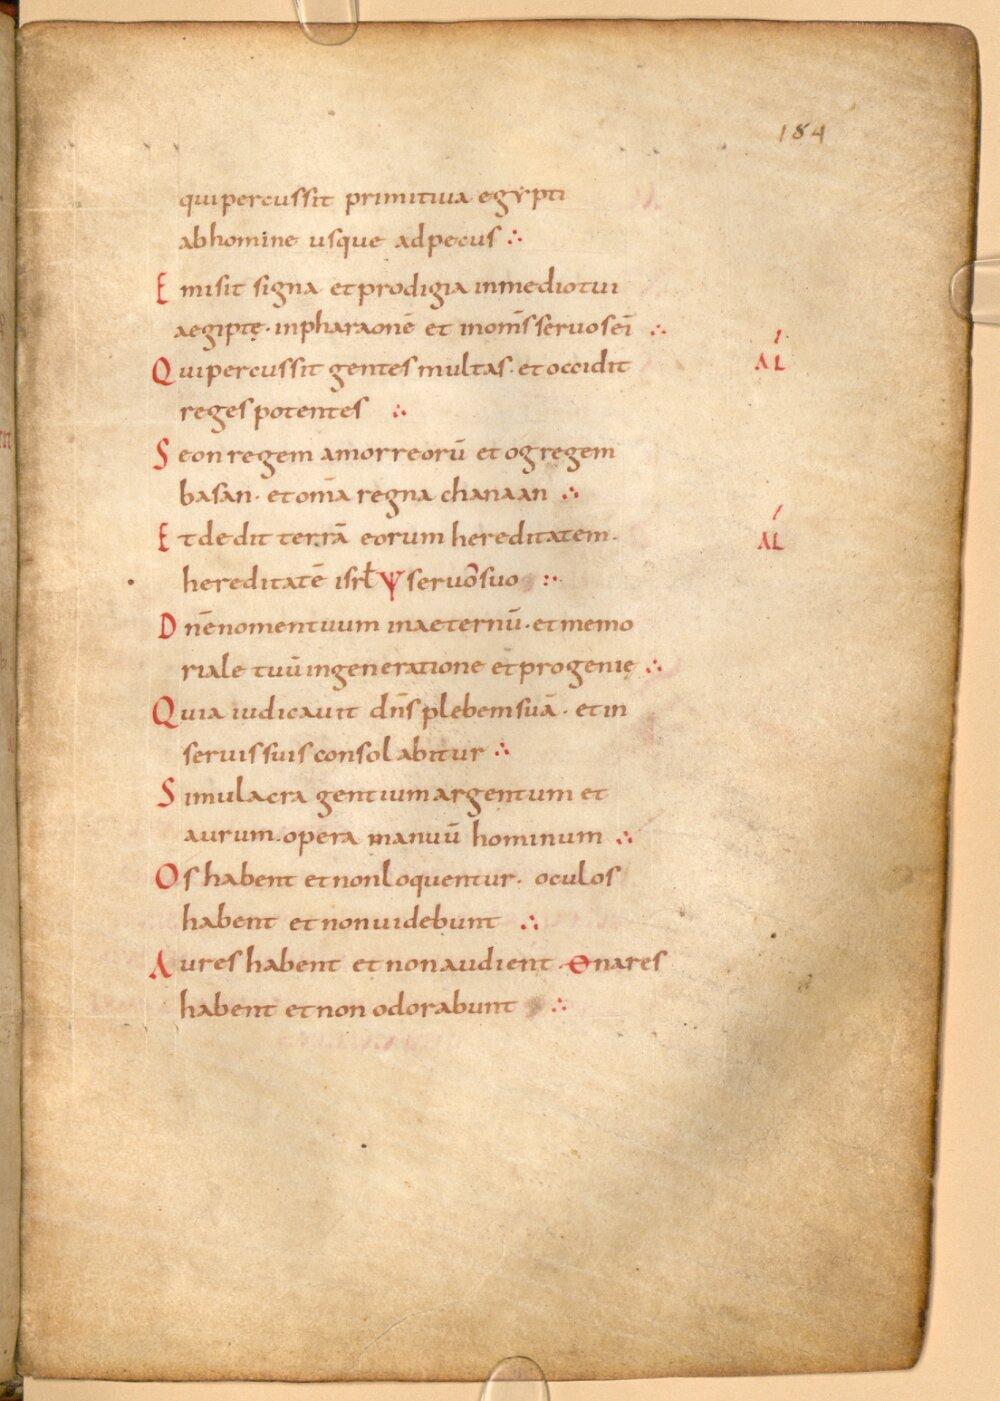 184
qui percussit primitiua egypti
ab homine usque ad pecus ∴
Emisit signa et prodigia in medio tui
aegiptę · in pharaonē et in om̄s seruos ei ∴
Qui percussit gentes multas · et occidit
AL
reges potentes ∴
Seon regem amorreorū et og regem
basan · et om̄a regna chanaan ∴
Et dedit terrā eorum hereditatem ·
AL
hereditatē isrł ψ seruo suo ∴
Dn̄e nomen tuum in aeternū · et memo
riale tuū in generatione et progenię ∴
Quia iudicauit dn̄s plebem suā · et in
seruis suis consolabitur ∴
Simulacra gentium argentum et
aurum · opera manuū hominum ∴
Os habent et non loquentur · oculos
habent et non uidebunt ∴
Aures habent et non audient · nares
habent et non odorabunt ∴